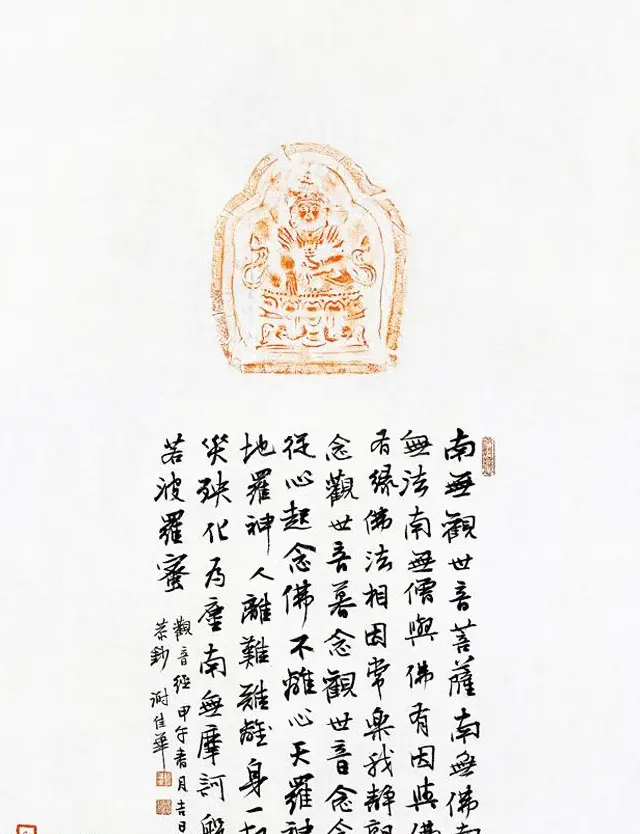 南無觀世音菩薩南無佛南
無法南無僧與佛有因與佛
有緣佛法相因常樂我靜朝
念觀世音暮念觀世音念念
從心起念佛不離心天羅神
地羅神人離難難離身一切
災殃化為塵南無摩訶般
若波羅蜜
觀音經甲午春月吉日
恭鈔 謝佳華